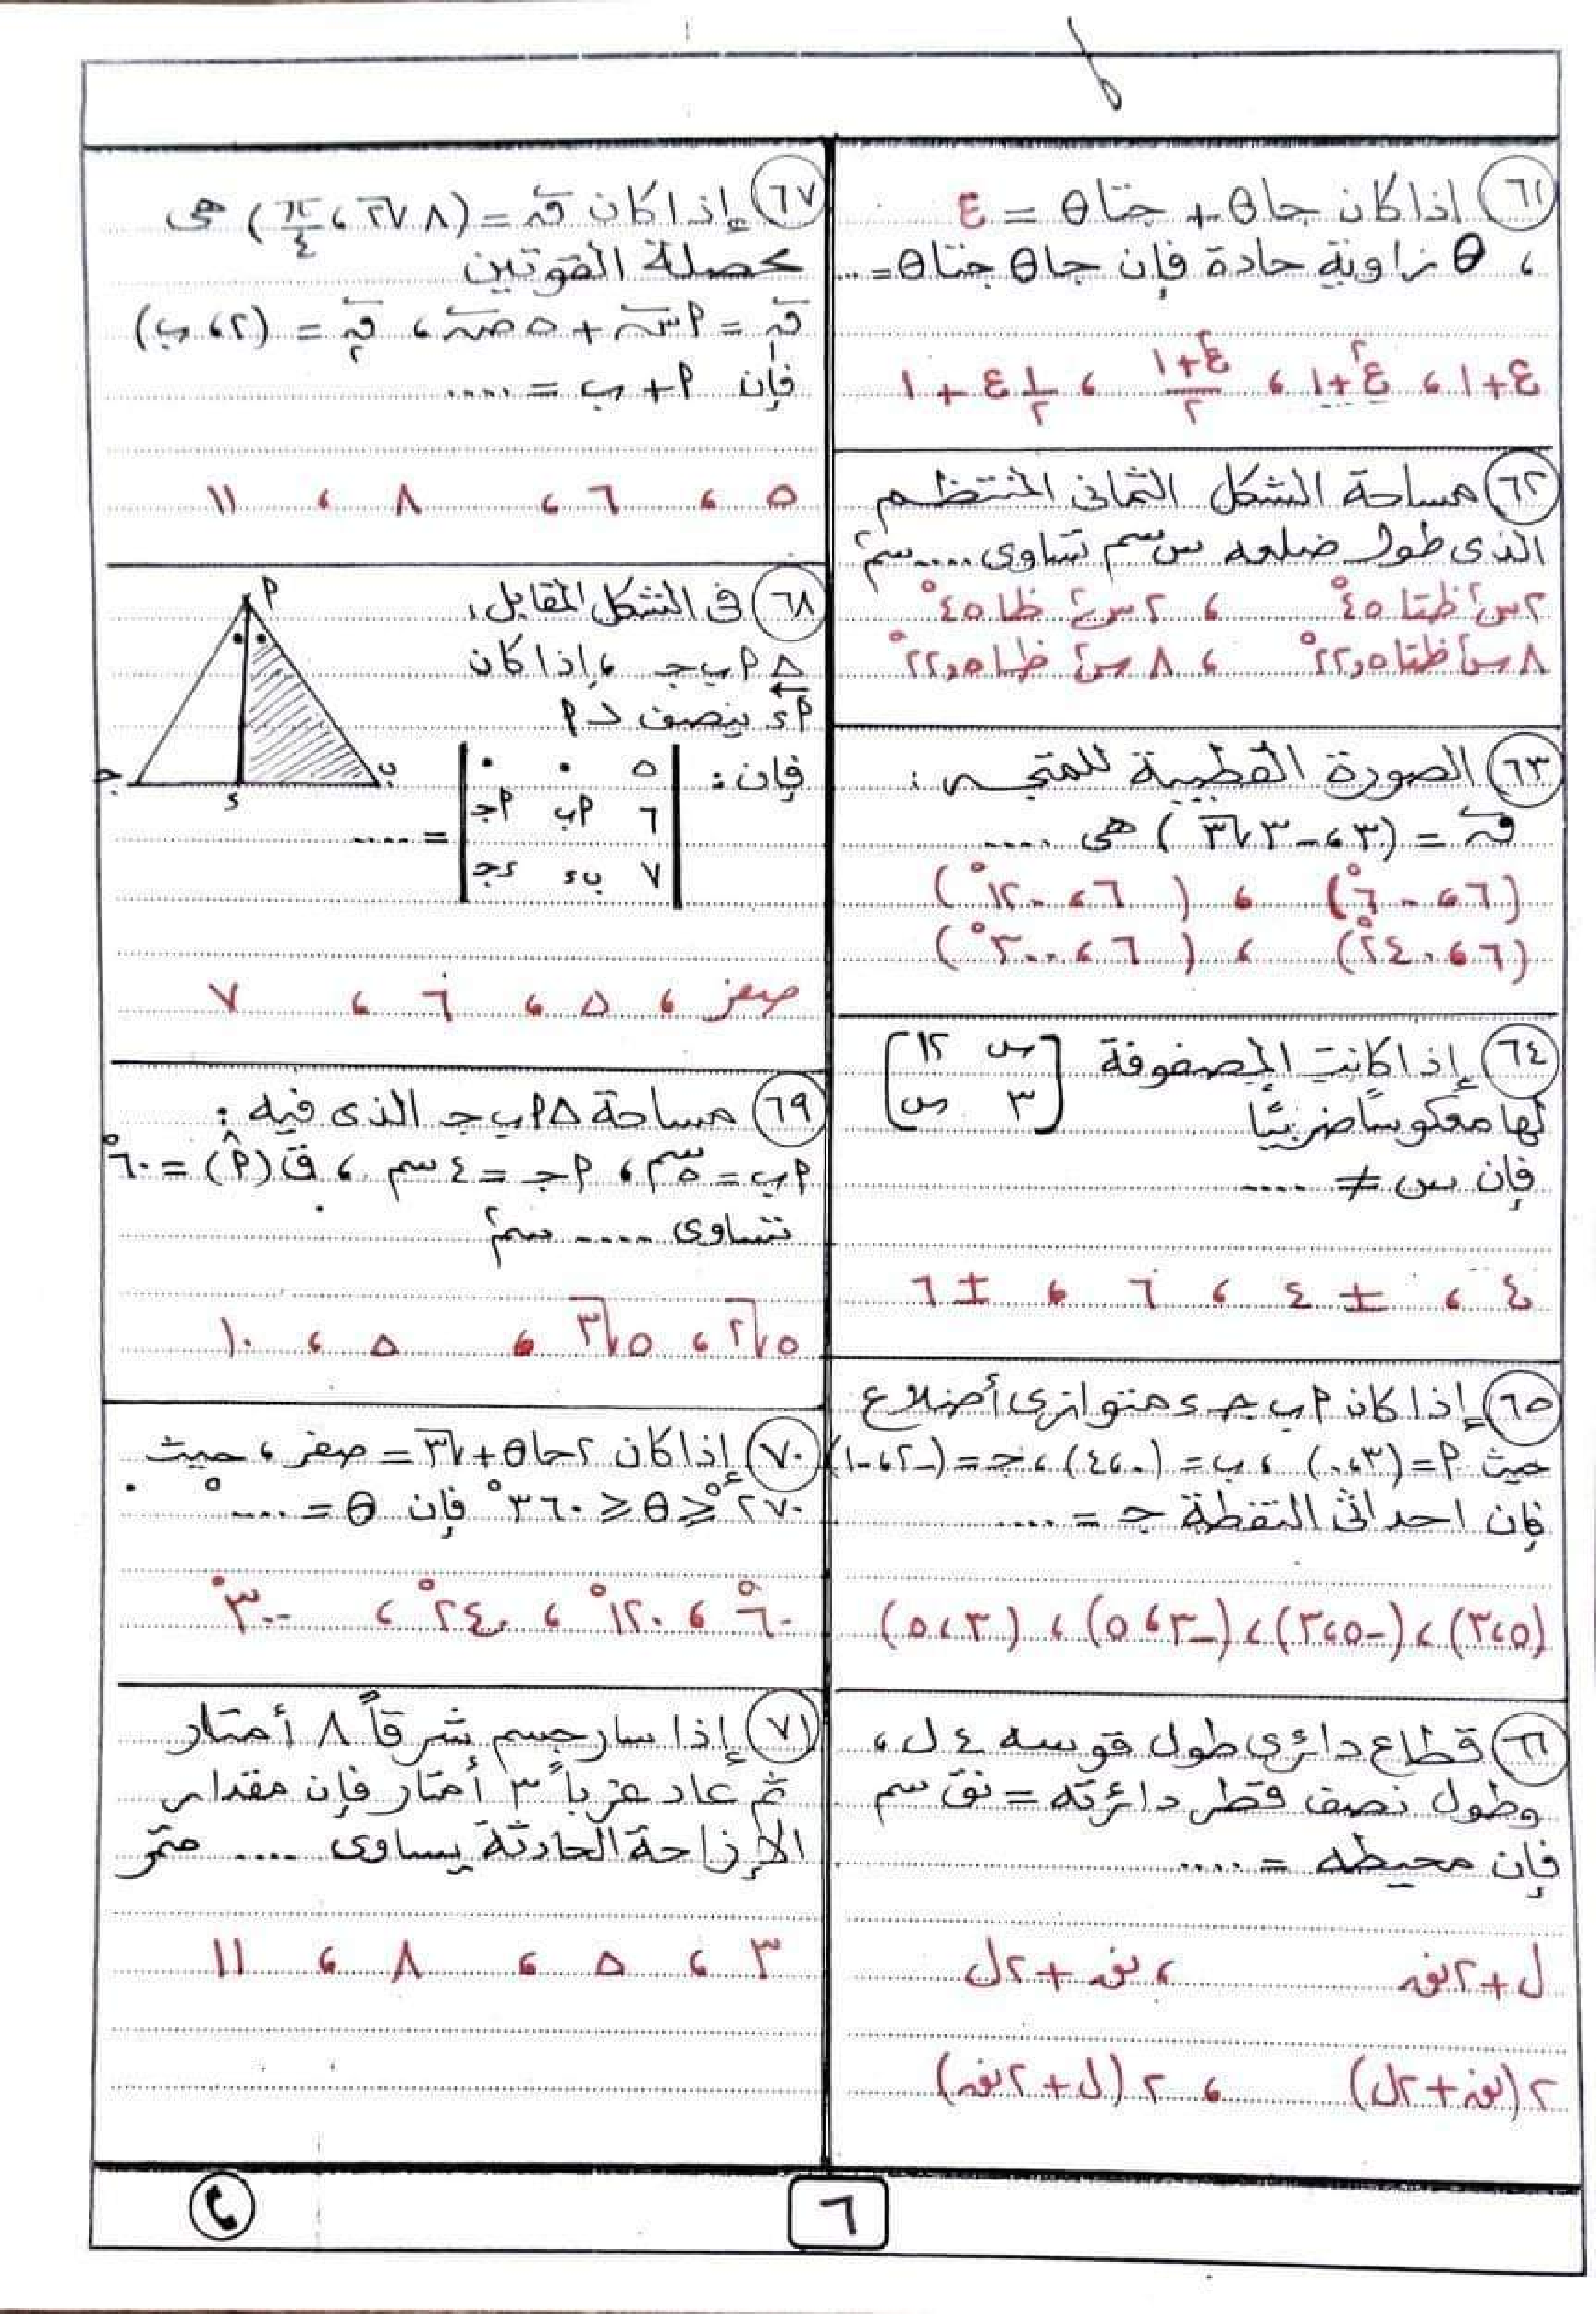 ٦١ اذا كان جا θ + جتا θ = ع
، θ زاوية حادة فإن جا θ جتا θ = ...
ع + ١ ، ع² + ١ ، (ع² + ١)/٢ ، ١/٢ ع + ١
٦٢ مساحة الشكل الثمانى المنتظم
الذى طول ضلعه س سم تساوى .... سم²
٢ س² ظتا ٤٥° ، ٢ س² ظا ٤٥°
٨ س² ظتا ٢٢,٥° ، ٨ س² ظا ٢٢,٥°
٦٣ الصورة القطبية للمتجه :
= (٣ ، -٣√٣) هى ....
(٦ ، -٦٠°) ، (٦ ، -١٢٠°)
(٦ ، ٢٤٠°) ، (٦ ، ٣٠٠°)
٦٤ إذا كانت المصفوفة [س ١٢
٣ س]
لها معكوساً ضربيًا
فإن س ≠ ....
٤ ، ± ٤ ، ٦ ، ± ٦
٦٥ إذا كان P ب جـ ء متوازى أضلاع
حيث P = (٣ ، ٠) ، ب = (٠ ، ٤) ، جـ = (-٢ ، -١)
فإن احداثى النقطة جـ = ....
(٥ ، ٣) ، (-٥ ، ٣) ، (-٣ ، ٥) ، (٣ ، ٥)
٦٦ قطاع دائرى طول قوسه ٤ ل ،
وطول نصف قطر دائرته = نق سم
فإن محيطه = ....
ل + ٢ نق ، نق + ٢ ل
٢ (نق + ٢ ل) ، ٢ (ل + ٢ نق)
٦٧ إذا كان ق = (٨√٢ ، π/٤) هى
محصلة القوتين
ق١ = P س + ٥ ص ، ق٢ = (٢ ، ب)
فإن P + ب = ....
٥ ، ٦ ، ٨ ، ١١
٦٨ فى الشكل المقابل :
Δ P ب جـ ، إذا كان
P ء ينصف د P
فإن : | ٥ ٠ ٠
٦ P ب P جـ
٧ ب ء ء جـ | = ....
P
ب
ء
جـ
صفر ، ٥ ، ٦ ، ٧
٦٩ مساحة Δ P ب جـ الذى فيه :
P ب = ٥ سم ، P جـ = ٤ سم ، ق (P̂) = ٦٠°
تساوى .... سم²
٥√٢ ، ٥√٣ ، ٥ ، ١٠
٧٠ إذا كان ٢ حا θ + √٣ = صفر ، حيث
٢٧٠° ≤ θ ≤ ٣٦٠° فإن θ = ....°
٦٠° ، ١٢٠° ، ٢٤٠° ، ٣٠٠°
٧١ إذا سار جسم شرقاً ٨ أمتار
ثم عاد غرباً ٣ أمتار فإن مقدار
الإزاحة الحادثة يساوى .... متر
٣ ، ٥ ، ٨ ، ١١
٦